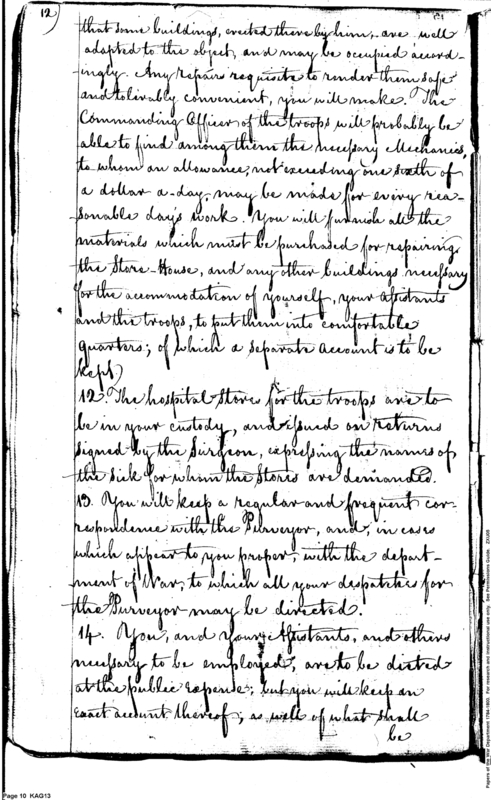 12)
that some buildings, erected there by him, are well
adapted to the object, and may be occupied accord-
ingly. Any repairs requisite to render them safe
and tolerably convenient, you will make. The
Commanding Officer of the troops will probably be
able to find among them the necessary Mechanics,
to whom an allowance, not exceeding one sixth of
a dollar a-day, may be made for every rea-
sonable day's work. You will furnish all the
materials which must be purchased for repairing
the Store-House, and any other buildings necessary
for the accommodation of yourself, your Assistants
and the troops, to put them into comfortable
quarters; of which a separate account is to be
kept)
12. The hospital Stores for the troops are to
be in your custody, and issued on returns
signed by the Surgeon, expressing the names of
the sick for whom the Stores are demanded.
13. You will keep a regular and frequent cor-
respondence with the Purveyor, and, in cases
which appear to you proper, with the depart-
ment of War, to which all your despatches for
the Purveyor may be directed.
14. You, and your Assistants, and others
necessary to be employed, are to be dieted
at the public expense; but you will keep an
exact account thereof; as well of what shall
be
Page 10 KAQ13
Papers of the War Department 1784-1800. For research and instructional use only. See Permissions Guide.